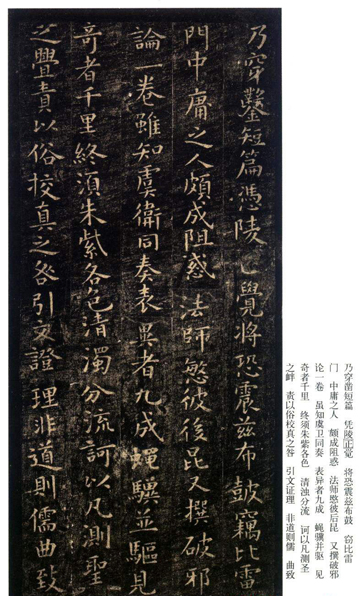 乃穿鑿短篇憑陵覺將恐震兹布鼓竊比雷
門中庸之人頗成阻惑 法師慜彼後昆又撰破邪
論一卷雖知虞衛同奏表異者九成蠅驥並驅見
奇者千里終須朱紫各色清濁分流訶以凡測聖
之釁責以俗校真之咎引文證理非道則儒曲致
乃穿凿短篇 凭陵正觉 将恐震兹布鼓 窃比雷
门 中庸之人 颇成阻惑 法师愍彼后昆 又撰破邪
论一卷 虽知虞卫同奏 表异者九成 蝇骥并驱 见
奇者千里 终须朱紫各色 清浊分流 诃以凡测圣
之衅 责以俗校真之咎 引文证理 非道则儒 曲致